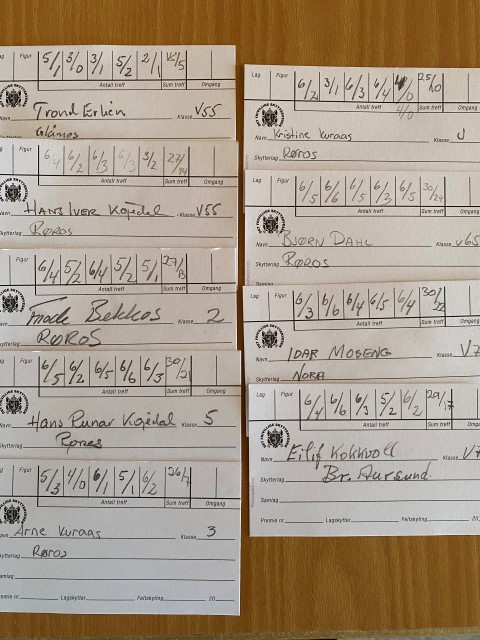 Figur 5/1 3/0 3/1 5/2 2/1
Antall treff Sum treff Omgang
Navn Trond Erlien Klasse V55
Glåmos
Lag Figur 6/4 6/2 6/3 6/3 3/2 27/14
Antall treff Sum treff Omgang
Navn HANS IVER KOJEDAL Klasse V55
Skytterlag RØROS
Figur 6/4 5/2 6/4 5/2 5/1 27/13
Antall treff Sum treff Omgang
Bekkos Klasse 2
RØROS
Lag Figur 6/5 6/2 6/5 6/6 6/3 30/21
Antall treff Sum treff Omgang
Navn Hans Runar Kojedal Klasse 5
Skytterlag Røros
Lag Figur 5/3 4/0 6/1 5/1 6/2 26/7
Antall treff Sum treff Omgang
Navn Arne Kuraas Klasse 3
Skytterlag Røros
Samlag
Premie nr. Lagskytter Feltskyting 20
Lag Figur 6/2 3/1 6/3 6/4 4/0 25/10
4/0
Antall treff Sum treff Omgang
Navn Kristine Kuraas Klasse J
Skytterlag RØROS
Lag Figur 6/5 6/6 6/5 6/3 6/5 30/24
Antall treff Sum treff Omgang
Navn BJØRN DAHL Klasse V65
Skytterlag RØROS
Samlag
Lag Figur 6/3 6/6 6/4 6/5 6/4 30/22
Antall treff Sum treff Omgang
Navn IDAR MOSENG Klasse V7
Skytterlag NORA
Lag Figur 6/4 6/6 6/3 5/2 6/2 29/17
Antall treff Sum treff Omgang
Navn Eilif Kokkvoll Klasse V7
Skytterlag Br. Aursund
Samlag
Premie nr. Lagskytter Feltskyting 20